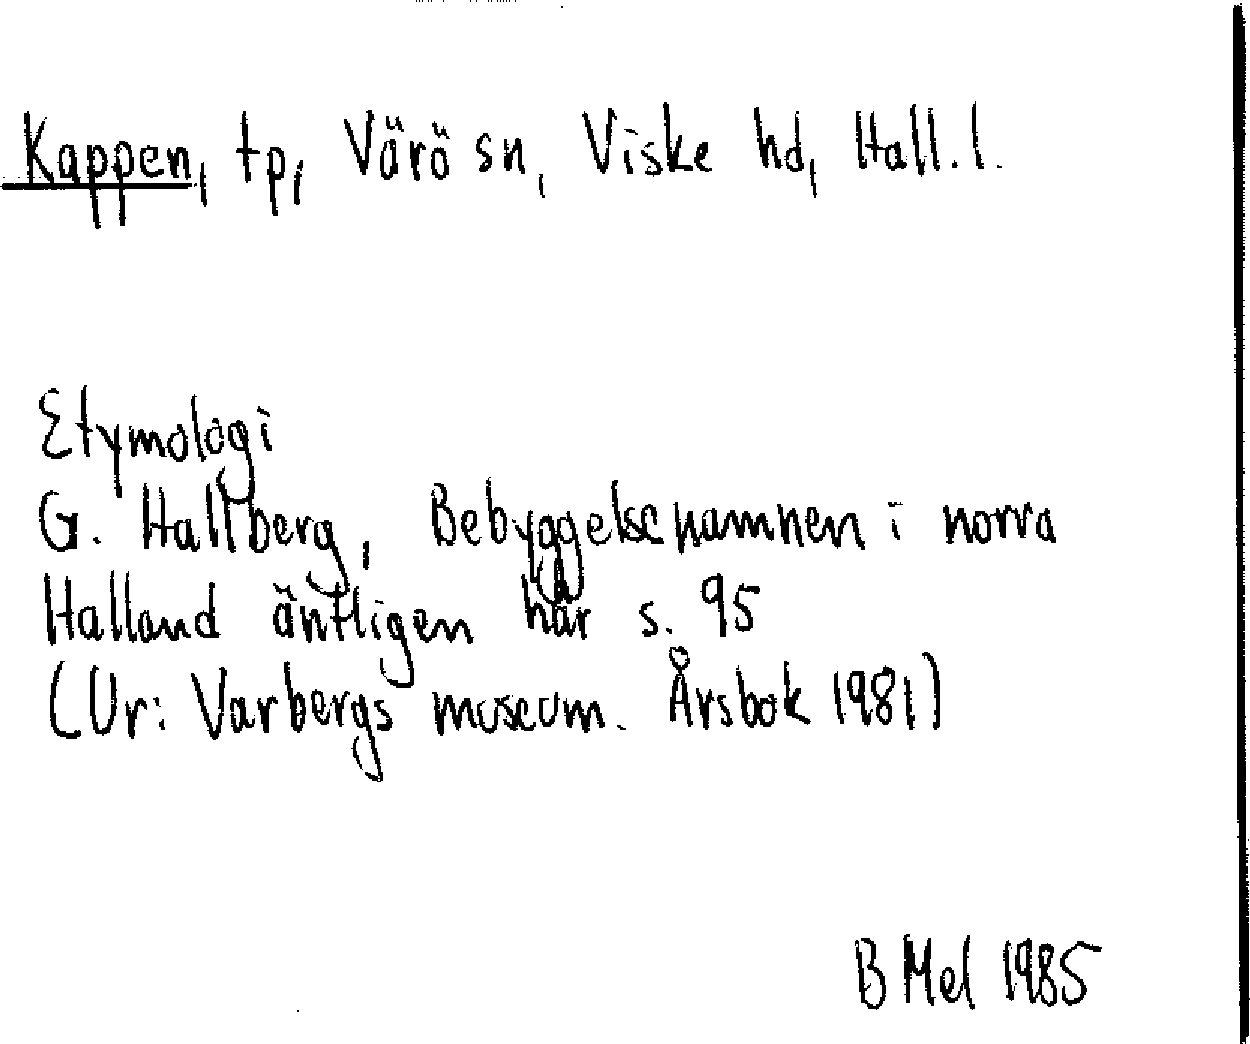 Kappen, tp, Värö sn, Viske hd, Hall. l.
Etymologi
G. Hallberg, Bebyggelsenamnen i norra
Halland äntligen här s. 95
(Ur: Varbergs museum. Årsbok 1981)
B Mel 1985